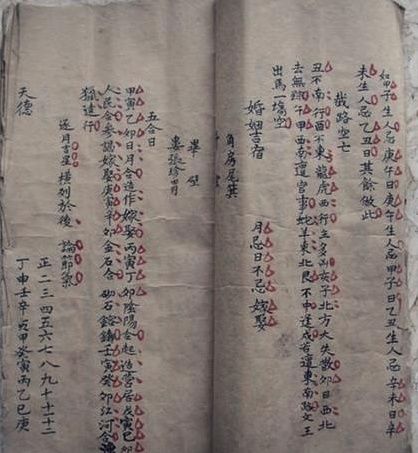 如甲子生人忌庚午日庚午生人忌甲子日乙丑生人忌辛未日辛
未生人忌乙丑日其餘做此
截路空亡
丑不南行酉不東龍虎西行主多凶子北方大失散卯日西北
去無踪午甲西南遭官事蛇羊東北艮不中達戌若遭東南路文王
出馬一塲空
婚姻吉宿
角房尾箕
月忌日不忌嫁娶
畢壁
婁張珍
五合日
甲寅乙卯日月合造作嫁娶丙寅丁卯陰陽合起造營居戊寅己卯
人民合參謁嫁娶庚寅辛卯金石合砌石鎔鑄壬寅癸卯江河合漁
獵達行
逐月吉星橫列於後論節氣
正二三四五六七八九十十一十二
天德
丁申壬辛亥甲癸寅丙乙巳庚